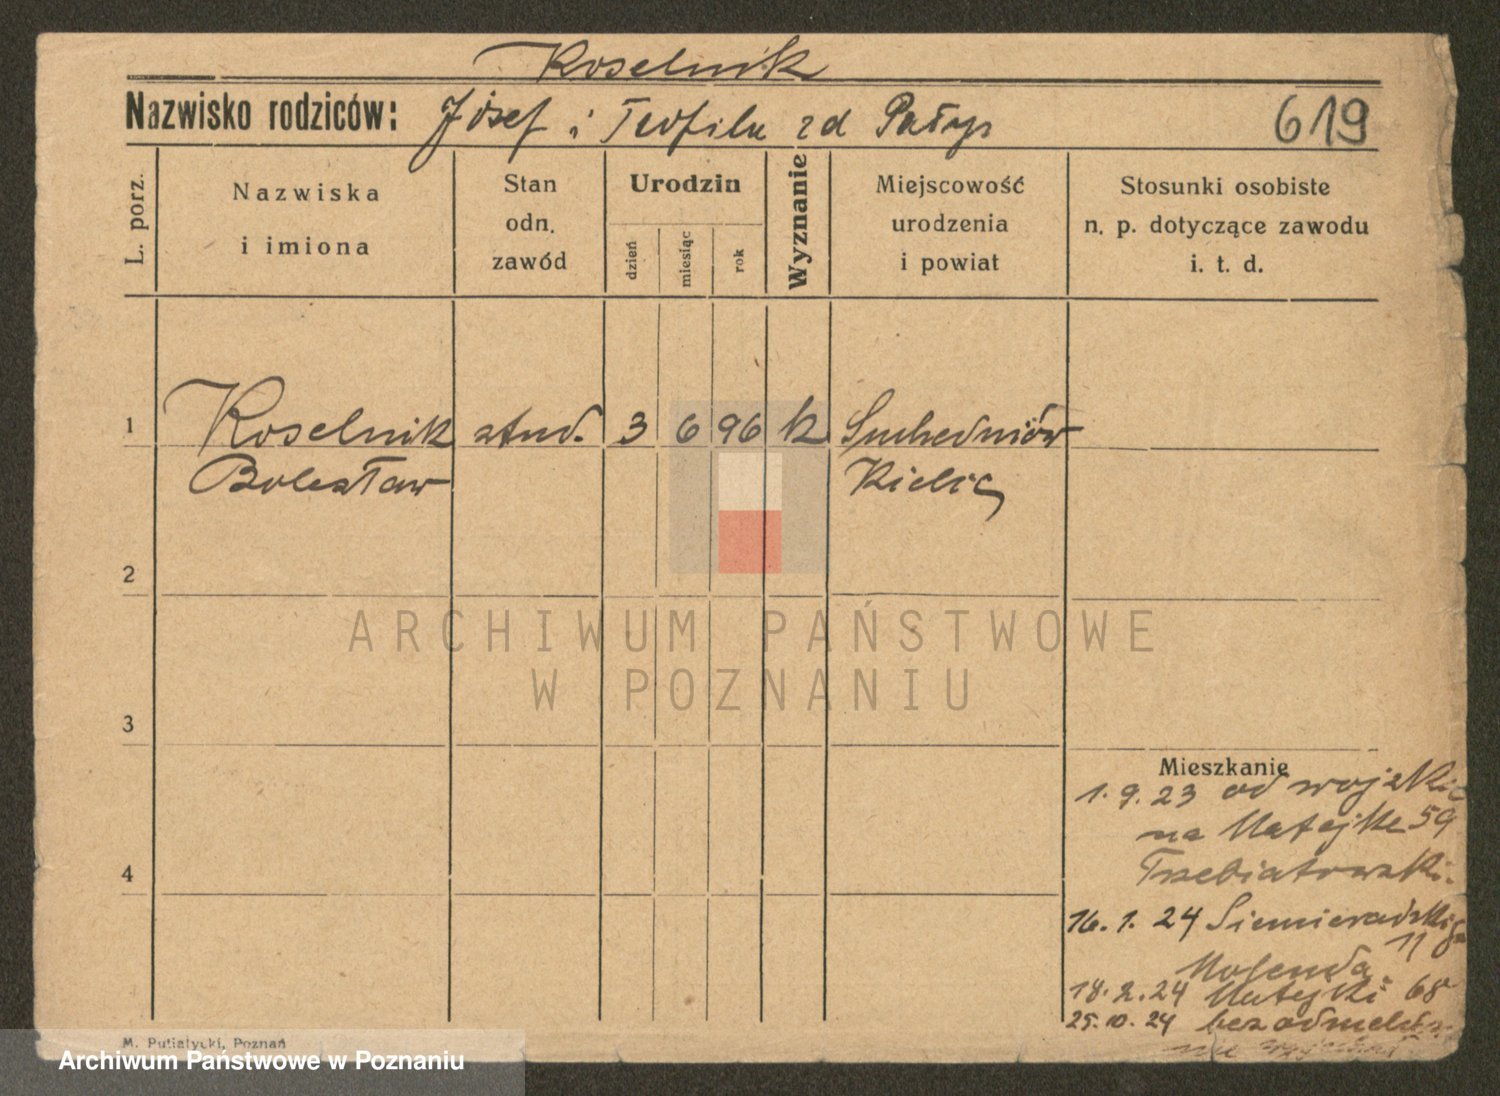 Koselnik
Nazwisko rodziców: Józef i Teofila zd Pałys 619
L. porz.
Nazwiska i imiona
Stan odn. zawód
Urodzin
dzień
miesiąc
rok
Wyznanie
Miejscowość urodzenia i powiat
Stosunki osobiste n. p. dotyczące zawodu i. t. d.
1 Koselnik stud. 3 6 96 k Suchedniów
Bolesław Kielc
2
3
4
Mieszkanie
1. 9. 23 od wojska
na Matejki 59
Trzebiatowski.
16. 1. 24 Siemieradzkiego
11
18. 2. 24 Matejki 68
25. 10. 24 bez odmeld.
nie
M. Putiatycki, Poznań
ARCHIWUM PAŃSTWOWE
W POZNANIU
Archiwum Państwowe w Poznaniu